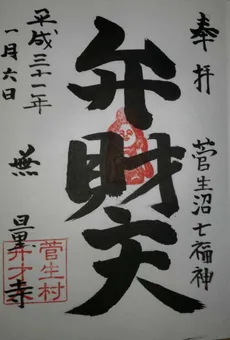 奉拝
菅生沼七福神
弁財天
平成三十一年
一月六日
無量寺
菅生村
弁才寺